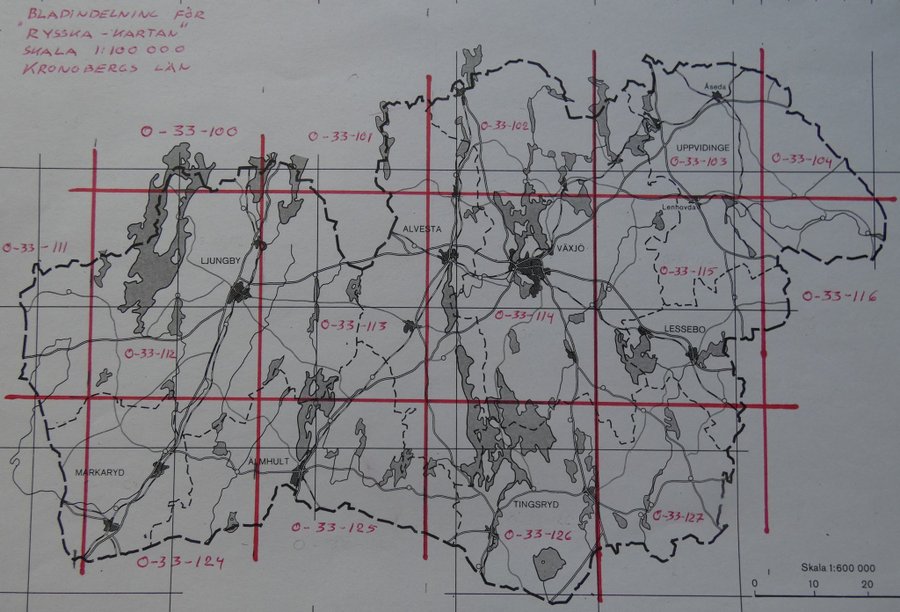 "BLADINDELNING FÖR
RYSSKA-KARTAN"
SKALA 1:100 000
KRONOBERGS LÄN
O-33-100
O-33-101
O-33-102
O-33-103
O-33-104
Åseda
UPPVIDINGE
Lenhovda
O-33-111
LJUNGBY
ALVESTA
VÄXJÖ
O-33-115
O-33-116
O-33-112
O-33-113
O-33-114
LESSEBO
MARKARYD
ÄLMHULT
TINGSRYD
O-33-124
O-33-125
O-33-126
O-33-127
Skala 1:600 000
0 10 20